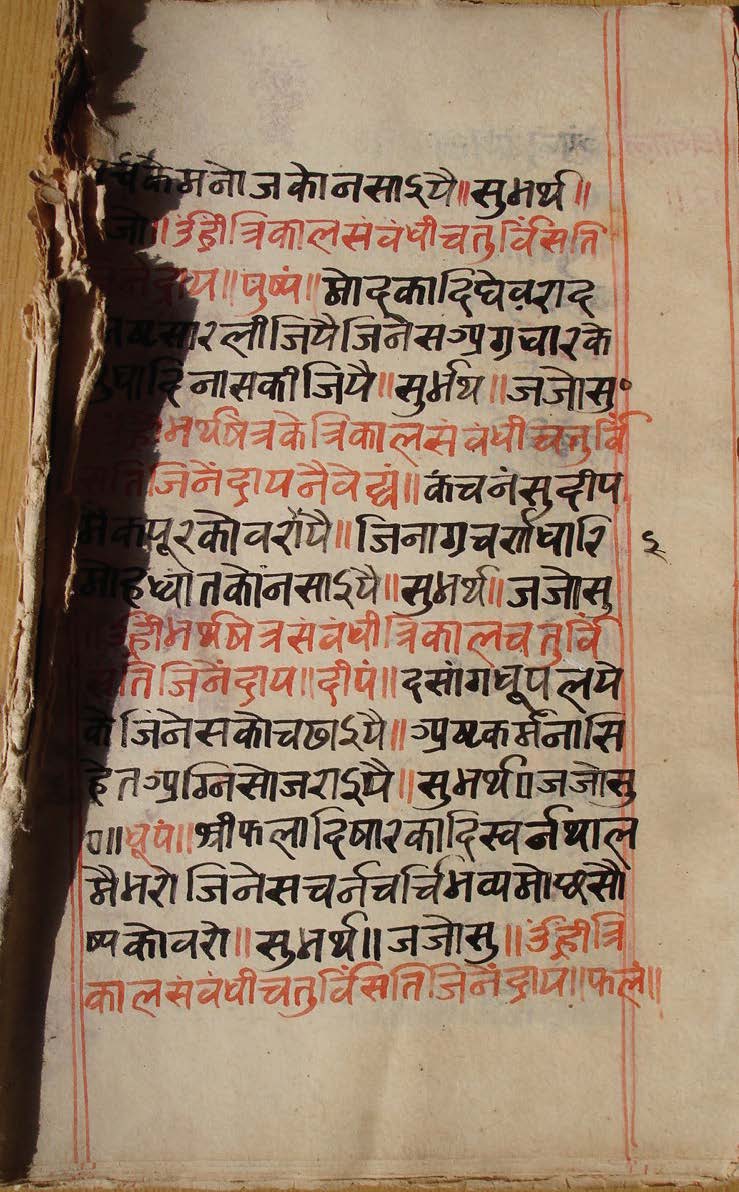 कै मनोज कोनसाऽयै॥सुभर्थ॥
जो॥उंह्रीत्रिकालसंवंधीचतुर्विंसिति
नेंद्राय॥पुष्पं॥मोदकादिघेवराद
सारलीजियैजिनेसग्रग्रधारके
धादिनासकीजियै॥सुर्भथ॥जजोसु॰
ह्रीभर्थषेत्रकेत्रिकालसंवंधीचतुर्विं
सतिजिनेंद्रायनैवेद्यं॥कंचनंसुदीप
मैकपूरकोवरायै॥जिनाग्रचर्णधारि
मोहध्वांतकोनसाऽयै॥सुभर्थ॥जजोसु
॥उंह्रींभर्थषेत्रसंवंधीत्रिकालचतुर्विं
सतिजिनेंद्राय॥दीपं॥दसांगधूपलये
कैजिनेसकोचढाऽयै॥अष्टकर्मनासि
हेतअग्निसोजराऽयै॥सुभर्थ०जजोसु
०॥धूपं॥श्रीफलादिषारकादिस्वर्नथाल
मैभरोजिनेसचर्नचर्चिभव्यमोछसौ
ष्यकोवरो॥सुभर्थ॥जजोसु॥उंह्रीत्रि
कालसंवंधीचतुर्विंसितिजिनेंद्राय॥फलं॥